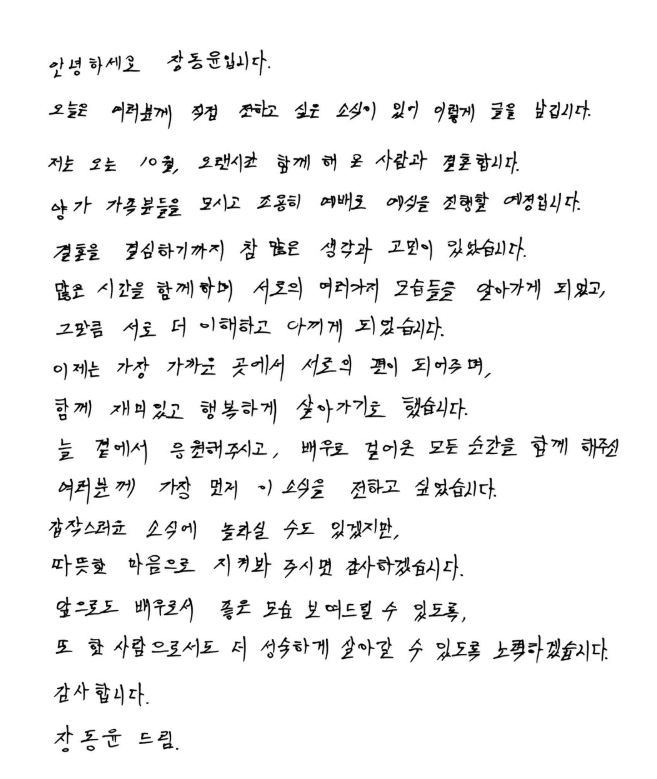 안녕하세요 장동윤입니다.
오늘은 여러분께 직접 전하고 싶은 소식이 있어 이렇게 글을 남깁니다.
저는 오는 10월, 오랜시간 함께 해 온 사람과 결혼합니다.
양가 가족분들을 모시고 조용히 예배로 예식을 진행할 예정입니다.
결혼을 결심하기까지 참 많은 생각과 고민이 있었습니다.
많은 시간을 함께하며 서로의 여러가지 모습들을 알아가게 되었고,
그만큼 서로 더 이해하고 아끼게 되었습니다.
이제는 가장 가까운 곳에서 서로의 편이 되어주며,
함께 재미있고 행복하게 살아가기로 했습니다.
늘 곁에서 응원해주시고, 배우로 걸어온 모든 순간을 함께 해주신
여러분께 가장 먼저 이 소식을 전하고 싶었습니다.
갑작스러운 소식에 놀라실 수도 있겠지만,
따뜻한 마음으로 지켜봐 주시면 감사하겠습니다.
앞으로도 배우로서 좋은 모습 보여드릴 수 있도록,
또 한 사람으로서도 더 성숙하게 살아갈 수 있도록 노력하겠습니다.
감사합니다.
장동윤 드림.